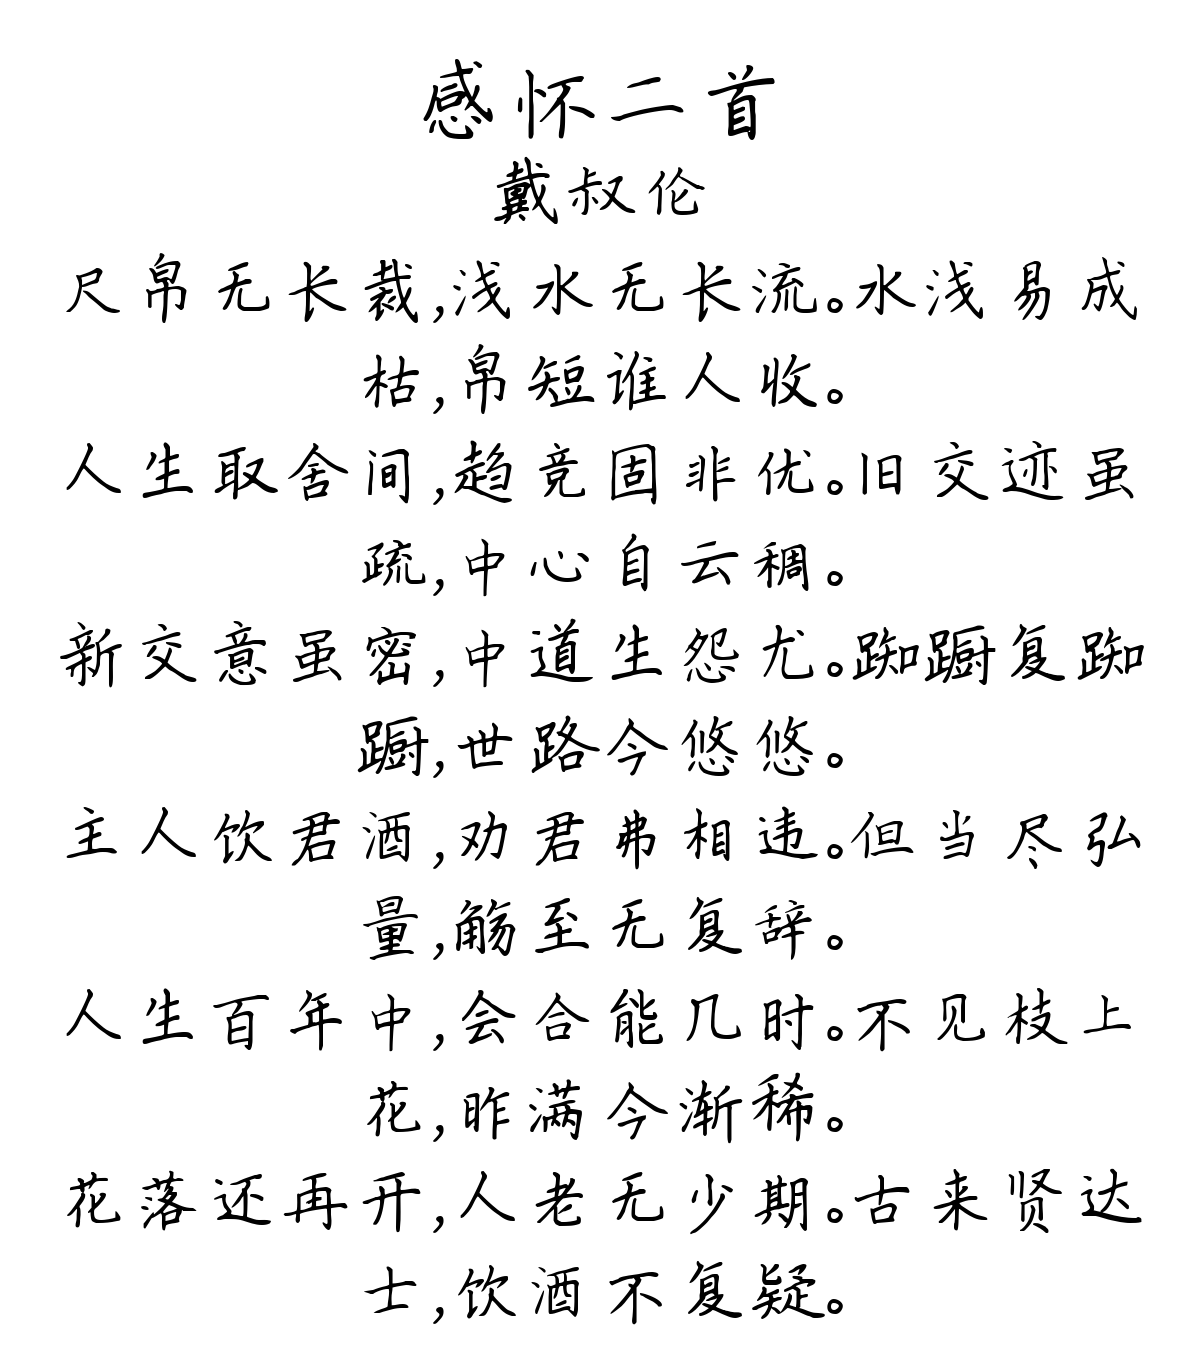 感怀二首
戴叔伦
尺帛无长裁,浅水无长流。水浅易成
枯,帛短谁人收。
人生取舍间,趋竞固非优。旧交迹虽
疏,中心自云稠。
新交意虽密,中道生怨尤。踟蹰复踟
蹰,世路今悠悠。
主人饮君酒,劝君弗相违。但当尽弘
量,觞至无复辞。
人生百年中,会合能几时。不见枝上
花,昨满今渐稀。
花落还再开,人老无少期。古来贤达
士,饮酒不复疑。